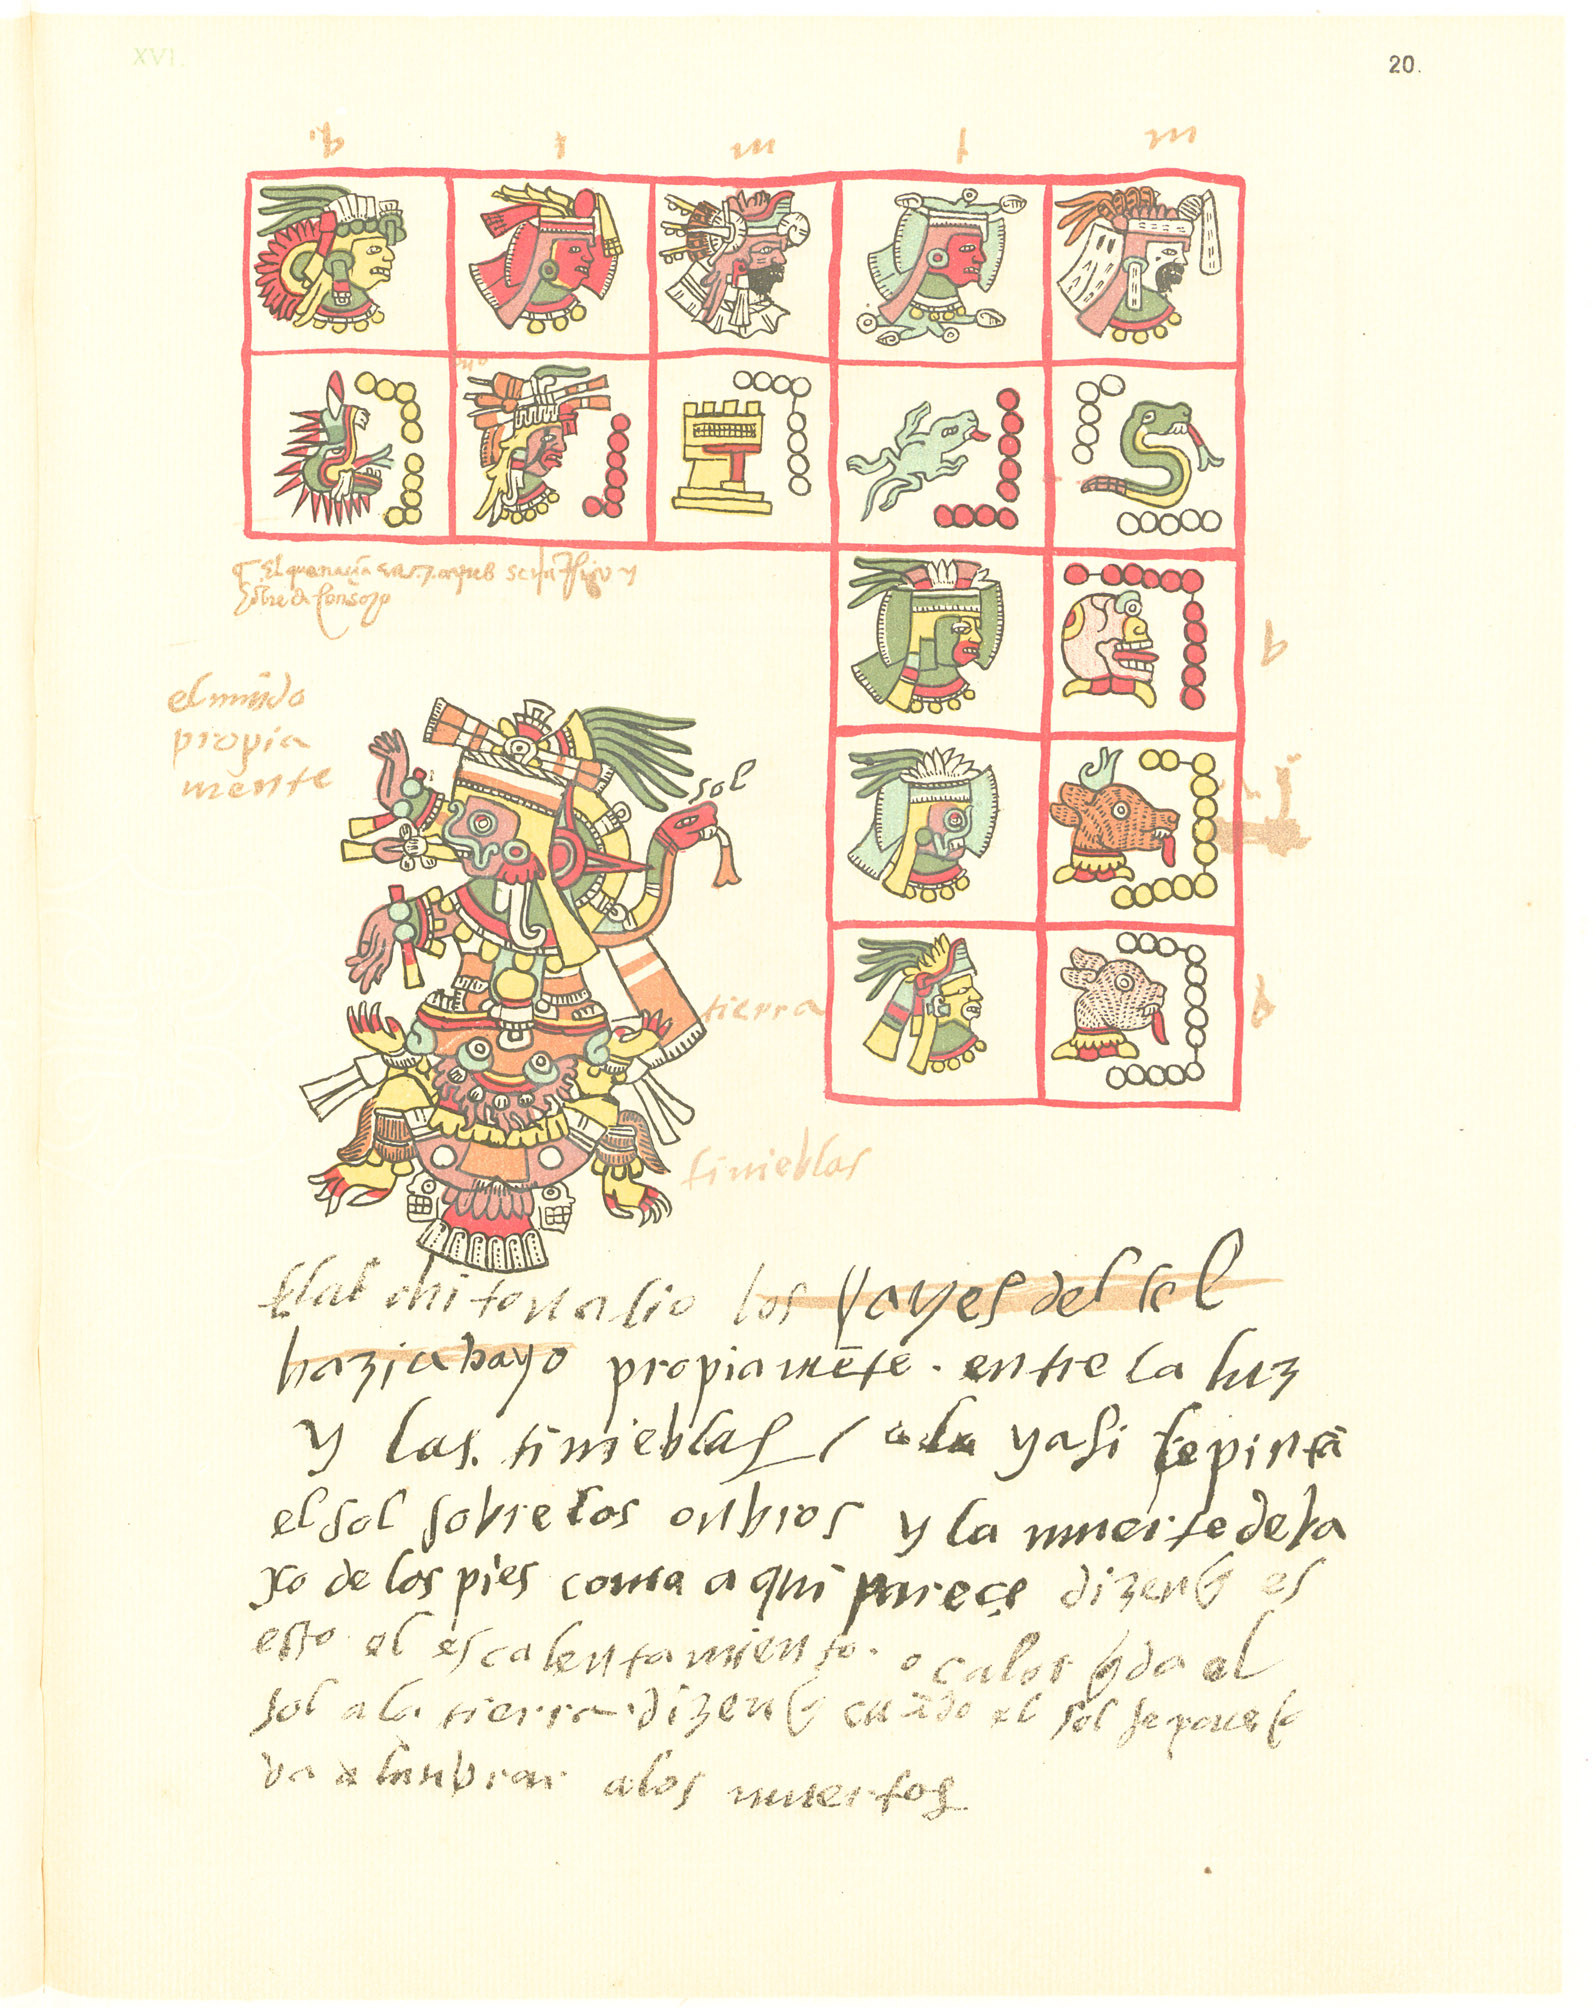 XVI.
20.
q. t m t m
el mūdo
propia
mente
sol
tierra
tinieblas
b
b
Tlal chi tonatio los Rayes del sol
hazia bayo propiamēte . entre la luz
y las tinieblas / a la yasi le pintā
el sol sobre los onbros y la muerte deba
xo de los pies coma aqui pareçe dizen q es
esto el escalentamiento . o calor q da el
sol a la tierra dizen q cuādo el sol se pone
va a lunbrar a los muertos